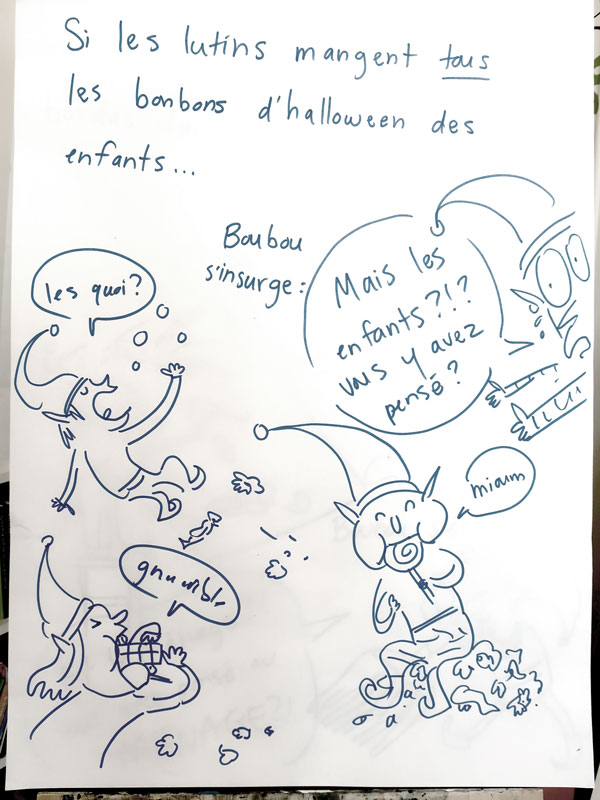 Si les lutins mangent tous
les bonbons d'halloween des
enfants...
Boubou
s'insurge:
Mais les
enfants?!?
vous y avez
pensé?
les quoi?
miam
gnumble